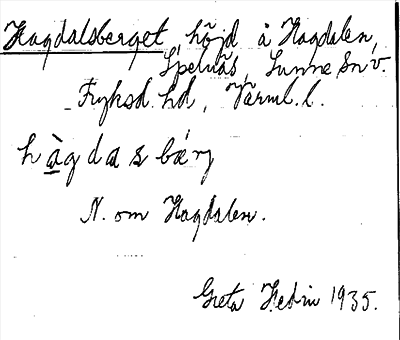 Hagdalsberget, höjd å Hagdalen,
Spelnäs, Sunne sn v.
Fryksd. hd, Värml. l.
hàgdasbærj
N. om Hagdalen.
Greta Hedin 1935.